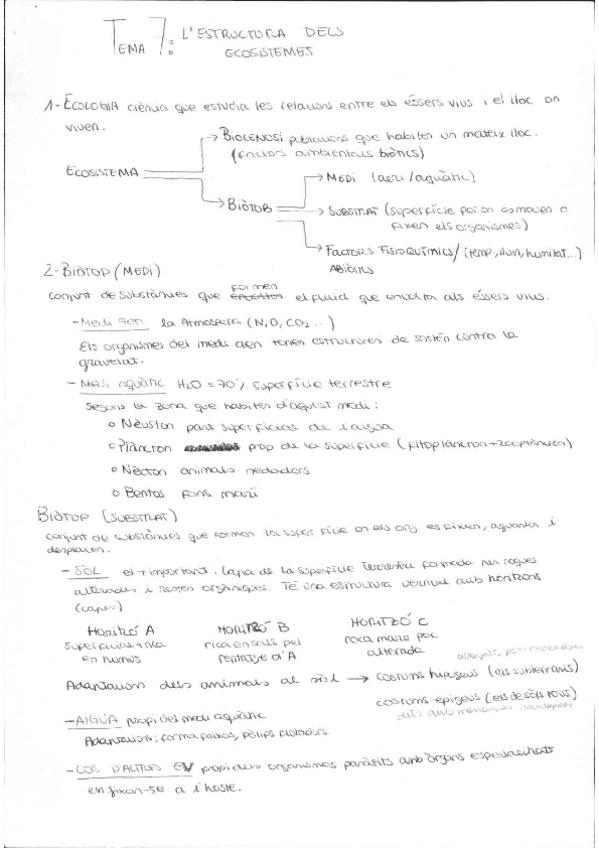 TEMA 7: L'ESTRUCTURA DELS
ECOSISTEMES
1- ECOLOGIA ciència que estudia les relacions entre els éssers vius i el lloc on
viuen.
BIOCENOSI poblacions que habiten un mateix lloc.
(factors ambientals biòtics)
ECOSISTEMA
MEDI (aeri/aquàtic)
BIÒTOP
SUBSTRAT (superfície por on es mouen o
fixen els organismes)
FACTORS FISIOQUÍMICS/ (temp, ilum, humitat...)
ABIÒTICS
2- BIÒTOP (MEDI)
conjunt de substàncies que formen el fluid que envolta als éssers vius.
- Medi aeri la Atmosfera (N, O, CO2...)
Els organismes del medi aeri tenen estructures de sostén contra la
gravetat.
- Medi aquàtic H2O = 70% superfície terrestre
Segons la zona que habiten d'aquest medi:
o Nèuston part superficial de l'aigua
o Plàncton prop de la superfície (fitoplàncton+zooplàncton)
o Nècton animals nedadors
o Bentos fons marí
BIÒTOP (SUBSTRAT)
conjunt de substàncies que formen la superfície on els org. es fixen, aguanten i
desplacen.
- SÒL el + important. Capa de la superfície Terrestre formada per roques
alterades i restes orgàniques. Té una estructura vertical amb horitzons
(capes)
Horitzó A HORITZÓ B HORITZÓ C
superficial + rica rica en sals pel roca mare poc
en humus rentatge d'A alterada
Adaptacions dels animals al sòl → costums hipogeus (els subterranis)
costums epigeus (els de sòls nous)
dels amb
- AIGUA propi del medi aquàtic
Adaptacions: forma peixos, pòlips flotadors.
- COS D'ALTRES EV propi dels organismes paràsits amb òrgans especialitzats
en fixar-se a l'hoste.